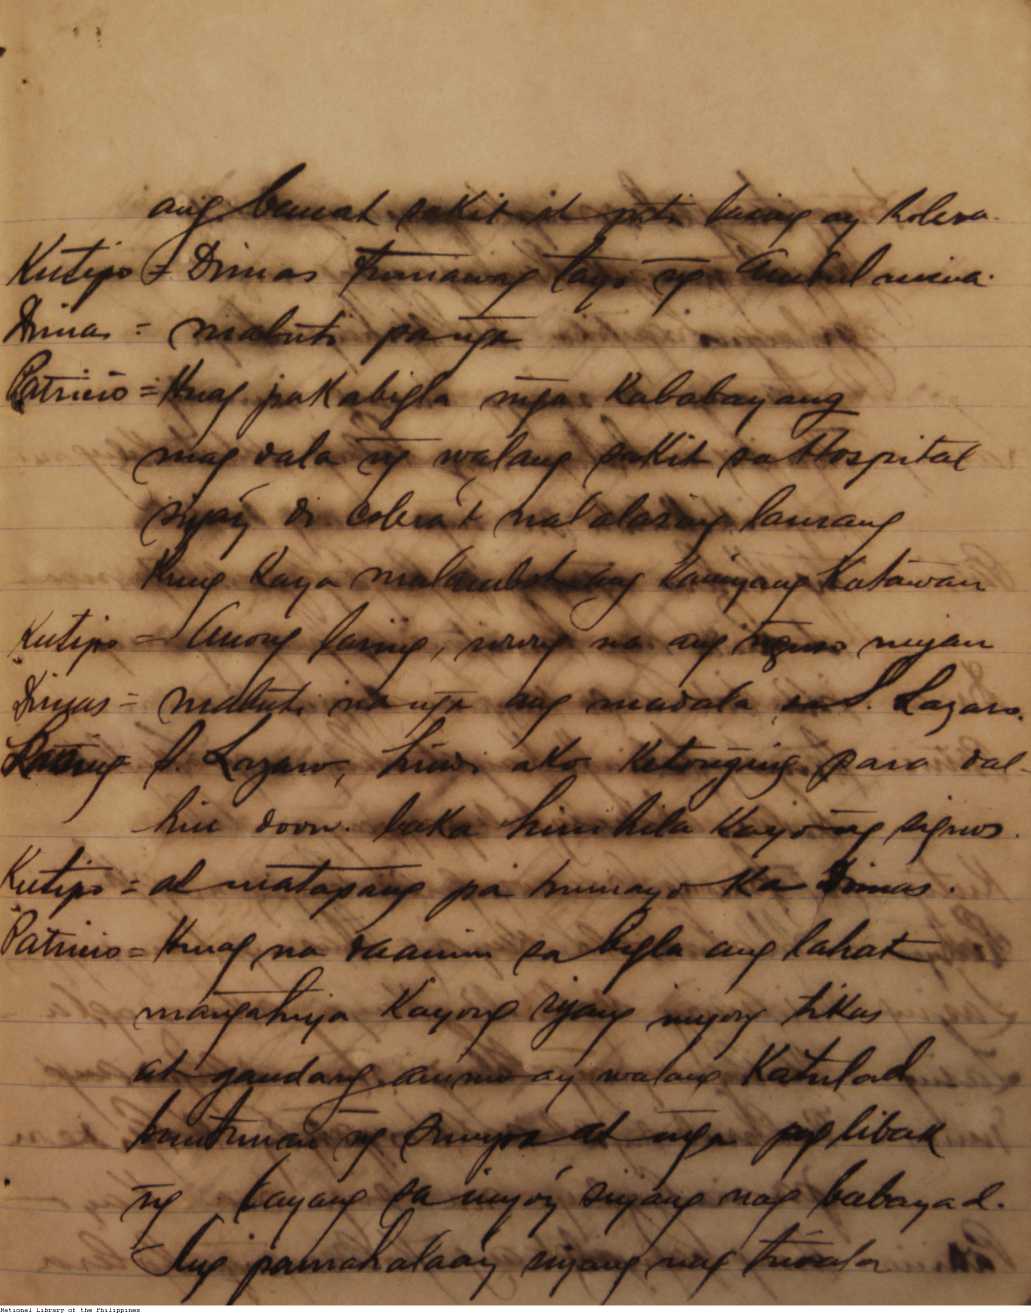 ang bawat sakit at ito lacing ay kolera.
Kutipo = Dimas tumawag tayo ng
Dimas = mabuti pa nga
Patricio = Huag pakabigla mga kababayang
mag dala ng walang sakit sa Hospital
siya'y di colera't nalalasing lamang
Kung kaya malambot ang kaniyang katawan
Kutipo = Anong lasing, na ang nguso niyan
Dimas = mabuti na nga ang madala sa S. Lazaro.
S. Lazaro, hindi ako ketonging para dal-
hin doon. baka hinihila kayo ng
Kutipo = at matapang pa humayo ka Dimas.
Patricio = Huag na daanin sa bigla ang lahat
mangahiya kayong niyong tikas
at gandang anino ay walang katulad
ng at mga pag libak
ng bayang sa inyo'y siyang nag babayad.
Ang pamahalaa'y siyang nag
National Library of the Philippines